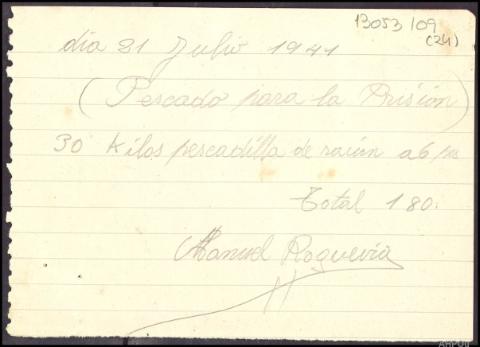 13053/09
(24)
dia 21 Julio 1941
(Pescado para la Prisión)
30 Kilos pescadilla de ración a 6 pts
Total 180.
Manuel Rogueria
AHPOu